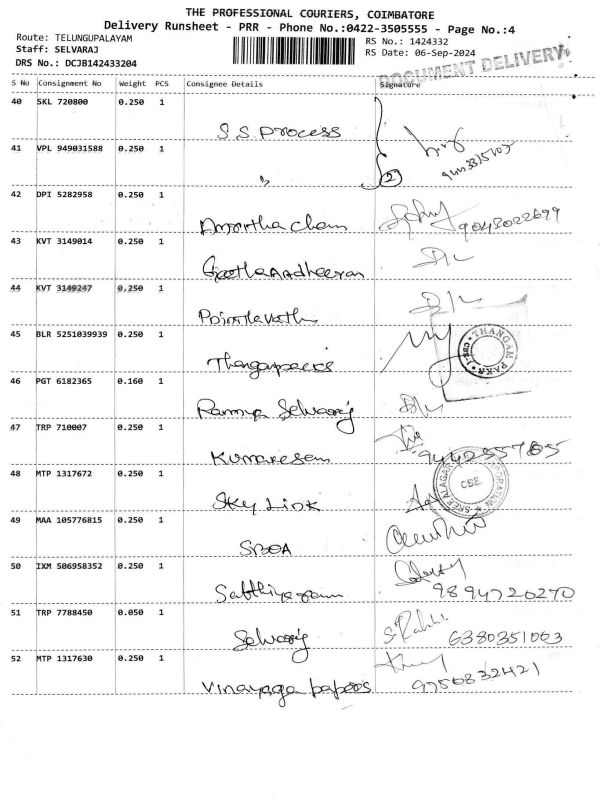 THE PROFESSIONAL COURIERS, COIMBATORE
Delivery Runsheet - PRR - Phone No.:0422-3505555 - Page No.:4
Route: TELUNGUPALAYAM
RS No.: 1424332
Staff: SELVARAJ
RS Date: 06-Sep-2024
DRS No.: DCJB142433204
DOCUMENT DELIVERY
S No Consignment No Weight PCS Consignee Details Signature
40 SKL 720800 0.250 1
S.S. Process
41 VPL 949031588 0.250 1
2
42 DPI 5282958 0.250 1
Amirtha Chem 9043022699
43 KVT 3149014 0.250 1
44 KVT 3149247 0.250 1
45 BLR 5251039939 0.250 1
THANGAM PARK
CBE
46 PGT 6182365 0.160 1
Ramya Selvaraj
47 TRP 710007 0.250 1
Kumaresan
48 MTP 1317672 0.250 1
Sky Link
CBE
49 MAA 105776815 0.250 1
50 IXM 506958352 0.250 1
9894720270
51 TRP 7788450 0.050 1
Selvaraj 6380351003
52 MTP 1317630 0.250 1
Vinayaga papers 9750832421